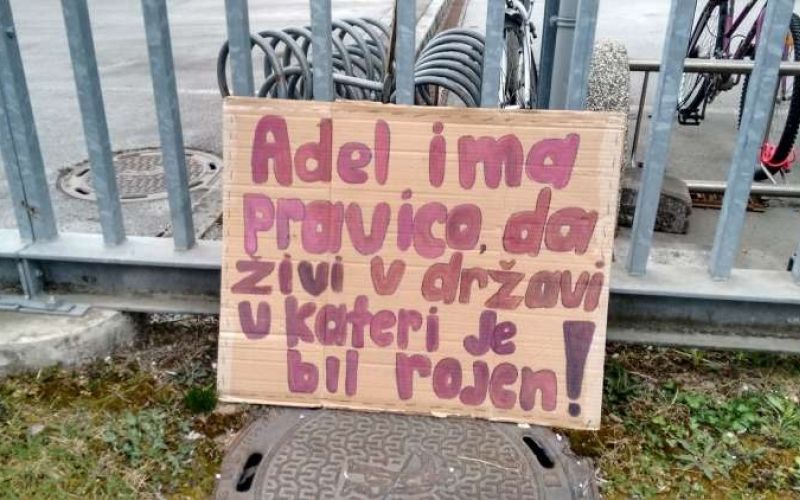 Adel ima
pravico, da
živi v državi
v kateri je
bil rojen!